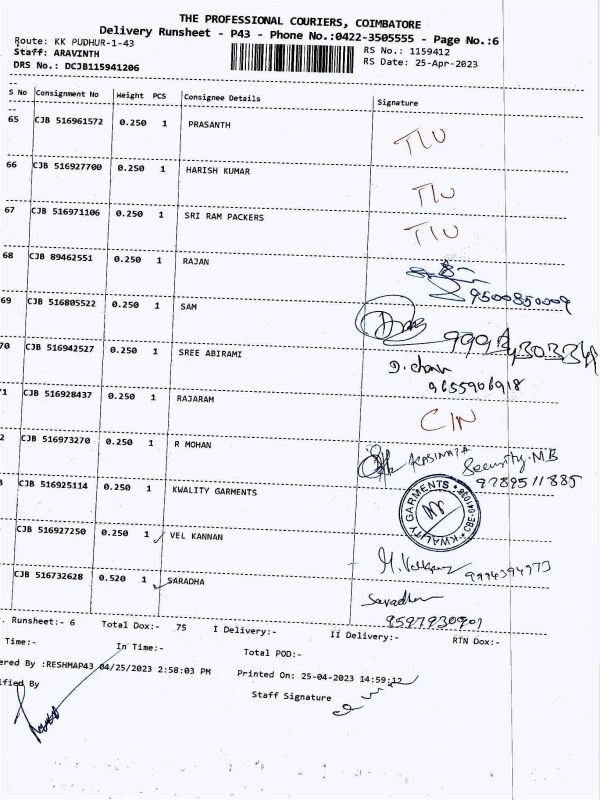 THE PROFESSIONAL COURIERS, COIMBATORE
Delivery Runsheet - P43 - Phone No.:0422-3505555 - Page No.:6
Route: KK PUDHUR-1-43
RS No.: 1159412
Staff: ARAVINTH
RS Date: 25-Apr-2023
DRS No.: DCJB115941206
S No Consignment No Weight PCS Consignee Details Signature
65 CJB 516961572 0.250 1 PRASANTH
66 CJB 516927700 0.250 1 HARISH KUMAR
67 CJB 516971106 0.250 1 SRI RAM PACKERS
68 CJB 89462551 0.250 1 RAJAN
9500850009
69 CJB 516805522 0.250 1 SAM
70 CJB 516942527 0.250 1 SREE ABIRAMI
9655906918
1 CJB 516928437 0.250 1 RAJARAM
CIN
2 CJB 516973270 0.250 1 R MOHAN
Security. MB
9789511885
3 CJB 516925114 0.250 1 KWALITY GARMENTS
KWALITY GARMENTS
CJB 516927250 0.250 1 VEL KANNAN
9994394973
CJB 516732628 0.520 1 SARADHA
Saradha
9597930901
. Runsheet:- 6 Total Dox:- 75 I Delivery:- II Delivery:- RTN Dox:-
Time:- In Time:- Total POD:-
ered By :RESHMAP43 04/25/2023 2:58:03 PM Printed On: 25-04-2023 14:59:12
ified By Staff Signature